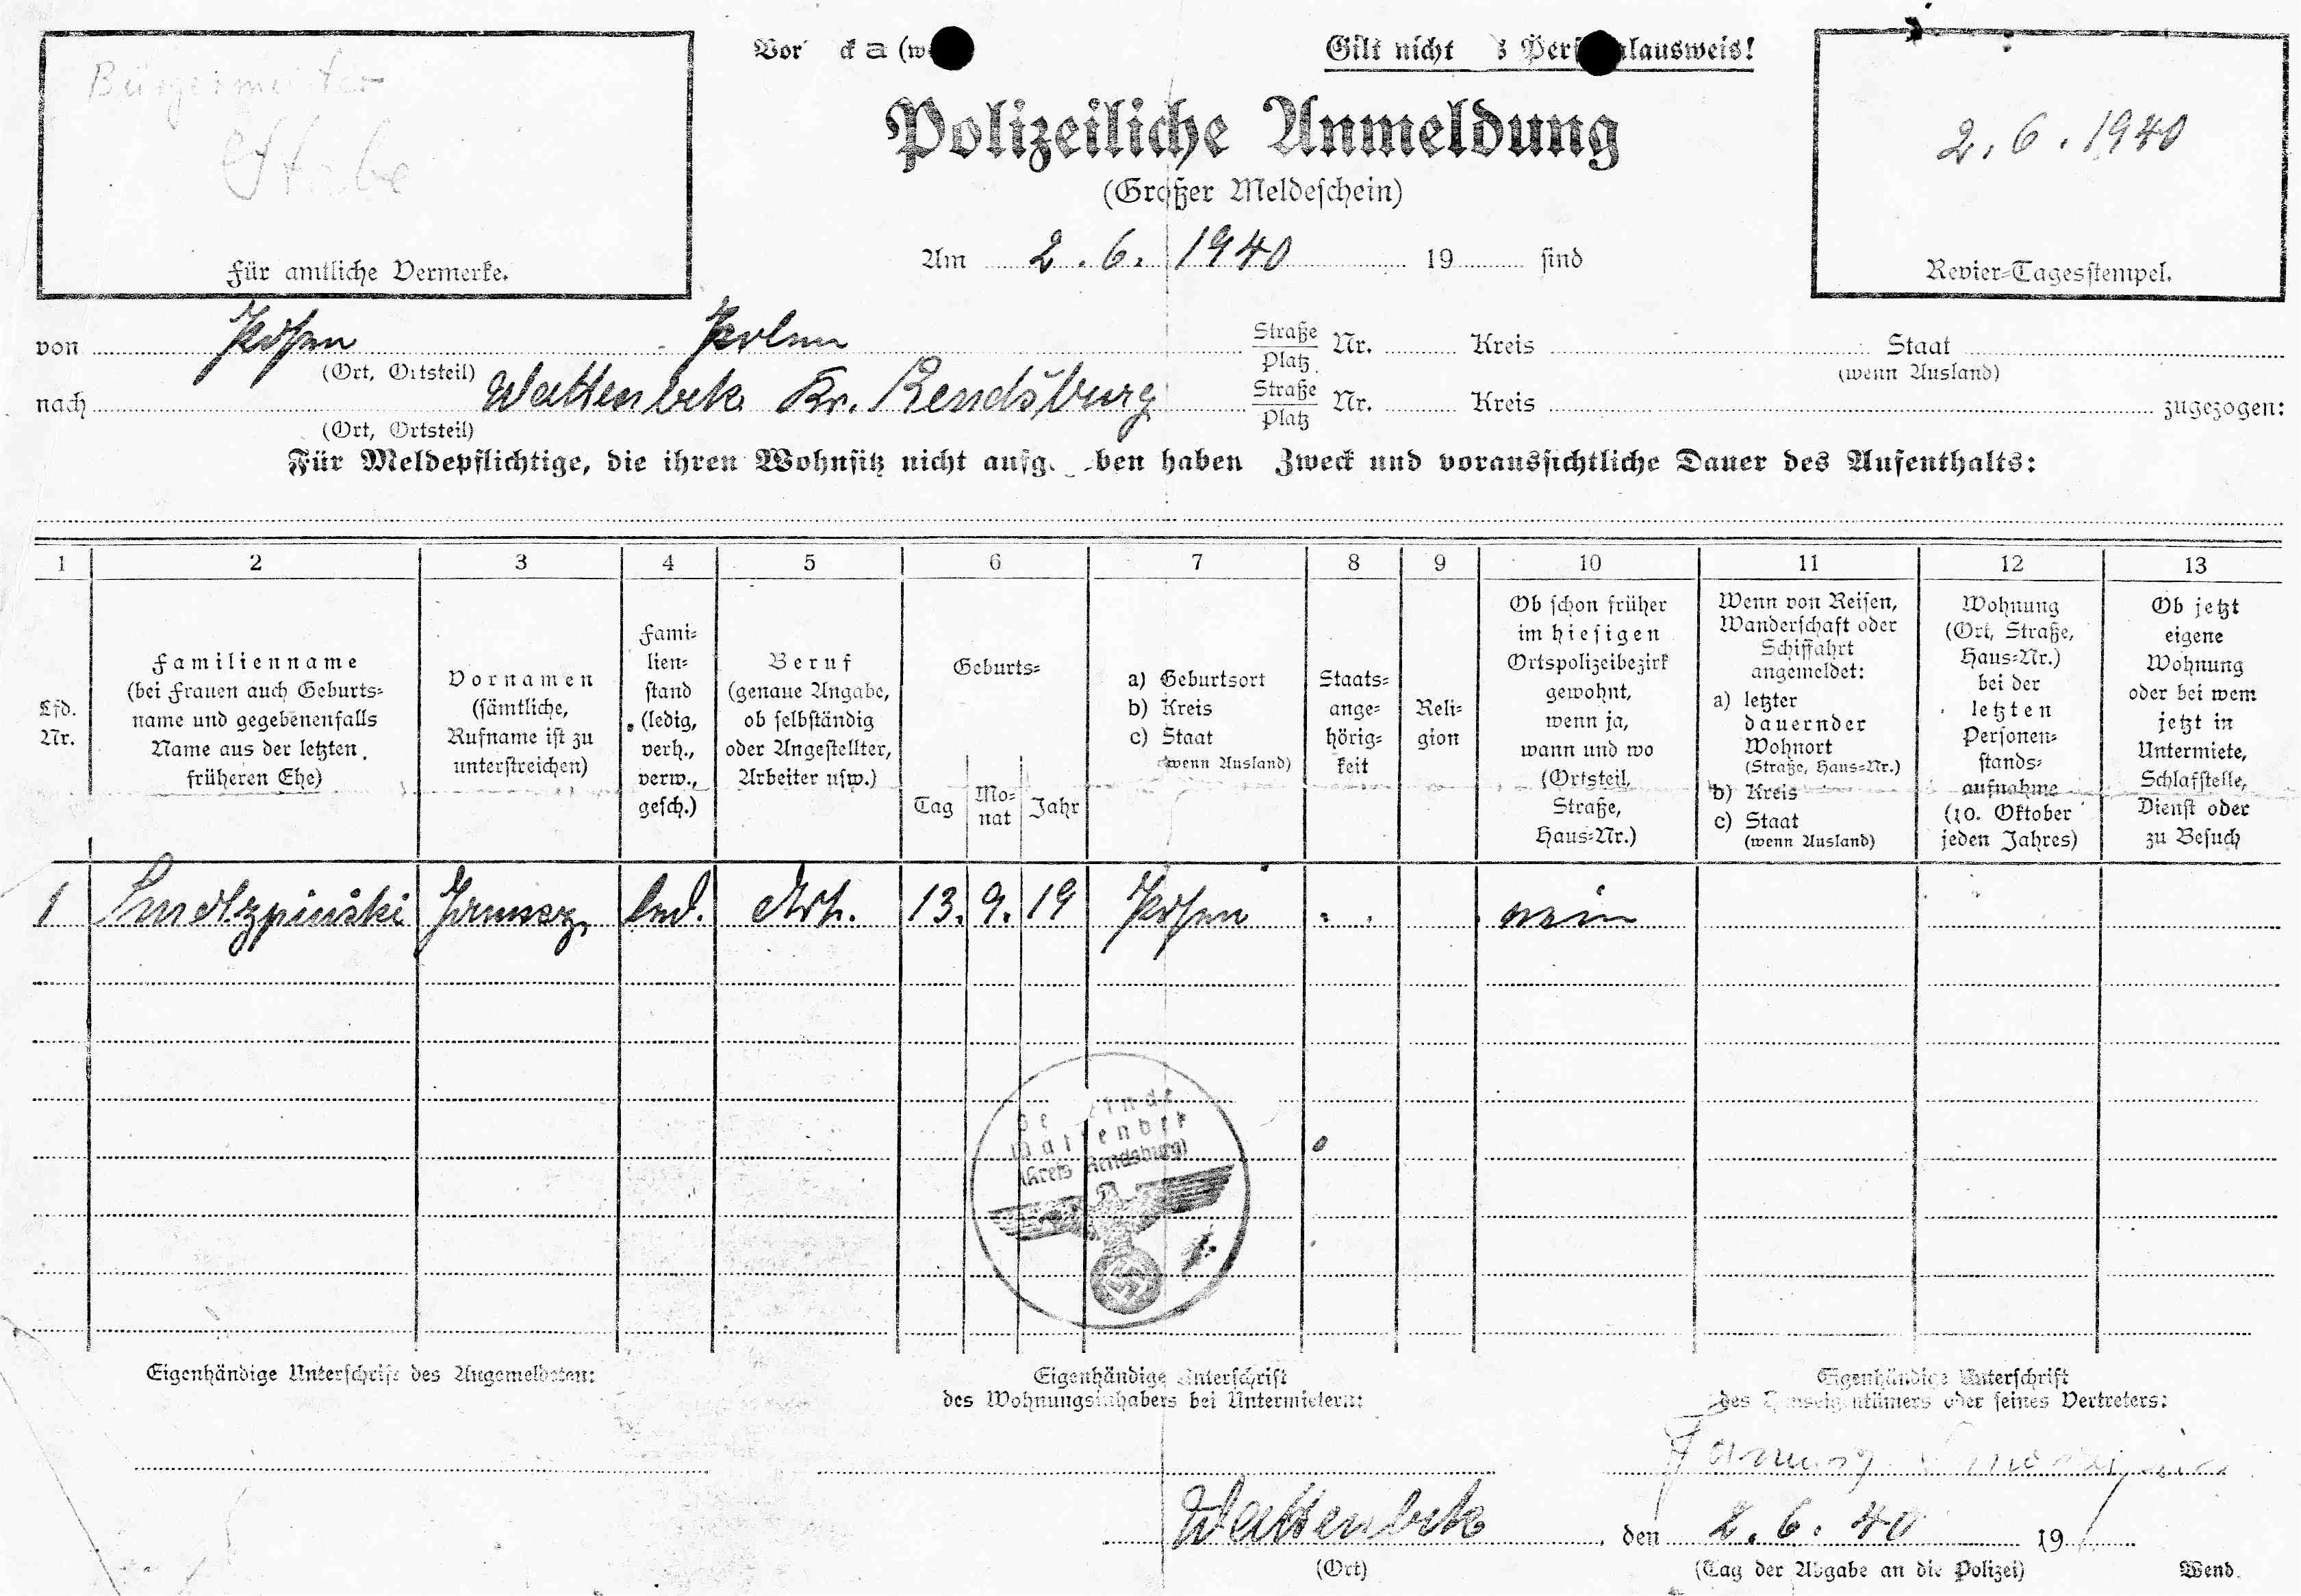 Bürgermeister
Stabe
Für amtliche Vermerke.
Vor ck a (w
Gilt nicht s Pers lausweis!
Polizeiliche Anmeldung
(Großer Meldeschein)
2.6.1940
Revier-Tagesstempel.
Am 2.6.1940 19 sind
von Posen Polen Straße Platz Nr. Kreis Staat
(Ort, Ortsteil) (wenn Ausland)
nach Wattenbek Kr. Rendsburg Straße Platz Nr. Kreis zugezogen:
(Ort, Ortsteil)
Für Meldepflichtige, die ihren Wohnsitz nicht aufg ben haben Zweck und voraussichtliche Dauer des Aufenthalts:
1 2 3 4 5 6 7 8 9 10 11 12 13
Lfd.
Nr.
Familienname
(bei Frauen auch Geburts-
name und gegebenenfalls
Name aus der letzten
früheren Ehe)
Vornamen
(sämtliche,
Rufname ist zu
unterstreichen)
Fami-
lien-
stand
(ledig,
verh.,
verw.,
gesch.)
Beruf
(genaue Angabe,
ob selbständig
oder Angestellter,
Arbeiter usw.)
Geburts-
Tag
Mo-
nat
Jahr
a) Geburtsort
b) Kreis
c) Staat
(wenn Ausland)
Staats-
ange-
hörig-
keit
Reli-
gion
Ob schon früher
im hiesigen
Ortspolizeibezirk
gewohnt,
wenn ja,
wann und wo
(Ortsteil,
Straße,
Haus-Nr.)
Wenn von Reisen,
Wanderschaft oder
Schiffahrt
angemeldet:
a) letzter
dauernder
Wohnort
(Straße, Haus-Nr.)
b) Kreis
c) Staat
(wenn Ausland)
Wohnung
(Ort, Straße,
Haus-Nr.)
bei der
letzten
Personen-
stands-
aufnahme
(10. Oktober
jeden Jahres)
Ob jetzt
eigene
Wohnung
oder bei wem
jetzt in
Untermiete,
Schlafstelle,
Dienst oder
zu Besuch
1 Janusz Arb. 13. 9. 19 Posen nein
Gemeinde
Wattenbek
(Kreis Rendsburg)
Eigenhändige Unterschrift des Angemeldeten:
Eigenhändige Unterschrift
des Wohnungsinhabers bei Untermietern:
Eigenhändige Unterschrift
des Hauseigentümers oder seines Vertreters:
Janusz
Wattenbek, den 2.6.40 19
(Ort) (Tag der Abgabe an die Polizei) Wend